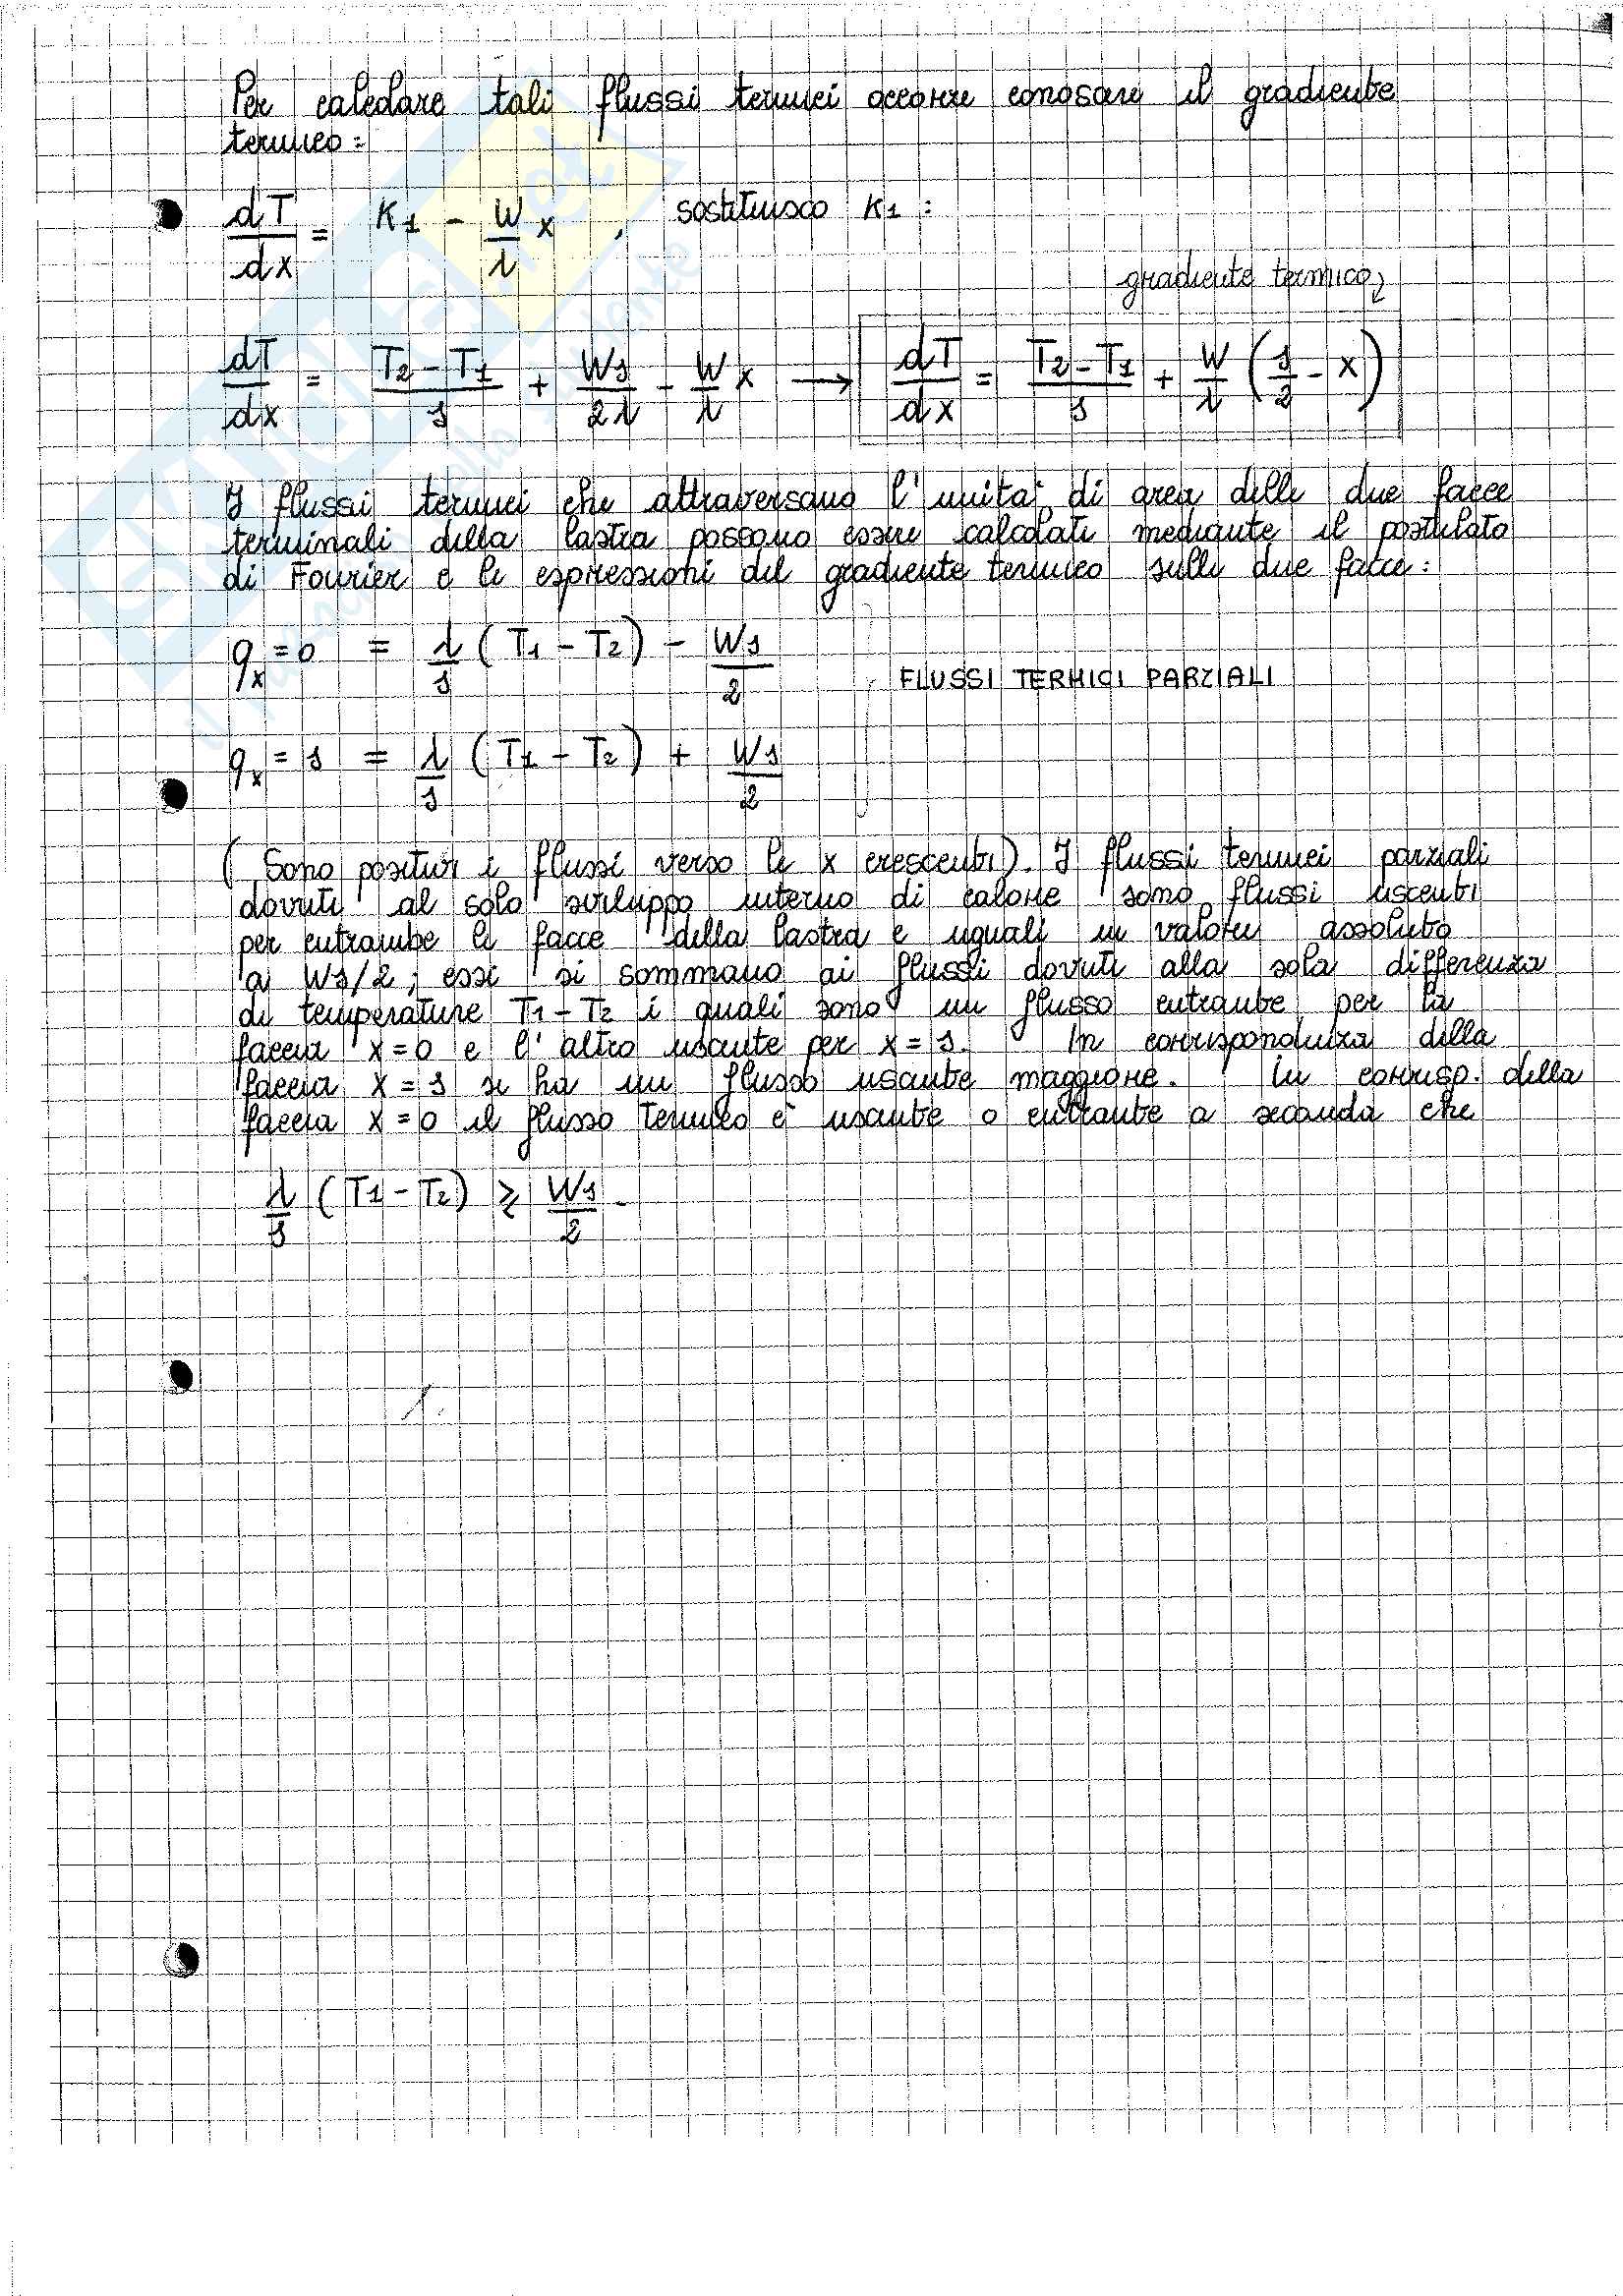 Per calcolare tali flussi termici occorre conoscere il gradiente
termico:
dT/dx = K1 - W/λ x , sostituisco K1 :
gradiente termico
dT/dx = (T2-T1)/s + Ws/2λ - W/λ x → dT/dx = (T2-T1)/s + W/λ (s/2 - x)
I flussi termici che attraversano l'unita' di area delle due facce
terminali della lastra possono essere calcolati mediante il postulato
di Fourier e le espressioni del gradiente termico sulle due facce:
qx=0 = λ/s (T1-T2) - Ws/2
FLUSSI TERMICI PARZIALI
qx=s = λ/s (T1-T2) + Ws/2
(Sono positivi i flussi verso le x crescenti). I flussi termici parziali
dovuti al solo sviluppo interno di calore sono flussi uscenti
per entrambe le facce della lastra e uguali in valore assoluto
a Ws/2; essi si sommano ai flussi dovuti alla sola differenza
di temperature T1-T2 i quali sono un flusso entrante per la
faccia x=0 e l'altro uscente per x=s. In corrispondenza della
faccia x=s si ha un flusso uscente maggiore. In corrisp. della
faccia x=0 il flusso termico e' uscente o entrante a seconda che
λ/s (T1-T2) ≥ Ws/2.